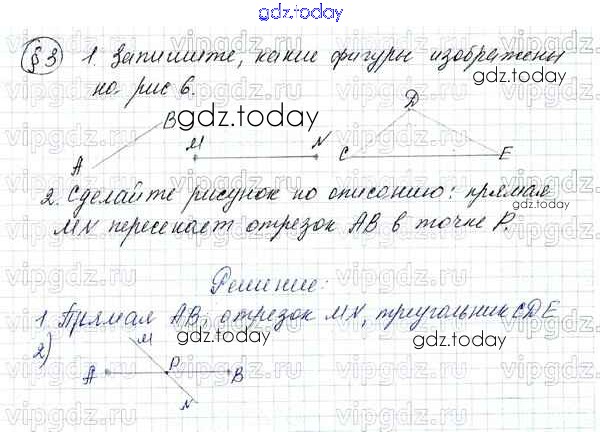 gdz.today
§3 1. Запишите, какие фигуры изображены
на рис 6.
gdz.today
gdz.today
A B M N C D E
2. Сделайте рисунок по описанию: прямая
gdz.today
MN пересекает отрезок AB в точке P.
Решение:
1 Прямая AB, отрезок MN, треугольник CDE
gdz.today
2)
M
A P B
N
gdz.today
vipgdz.ru